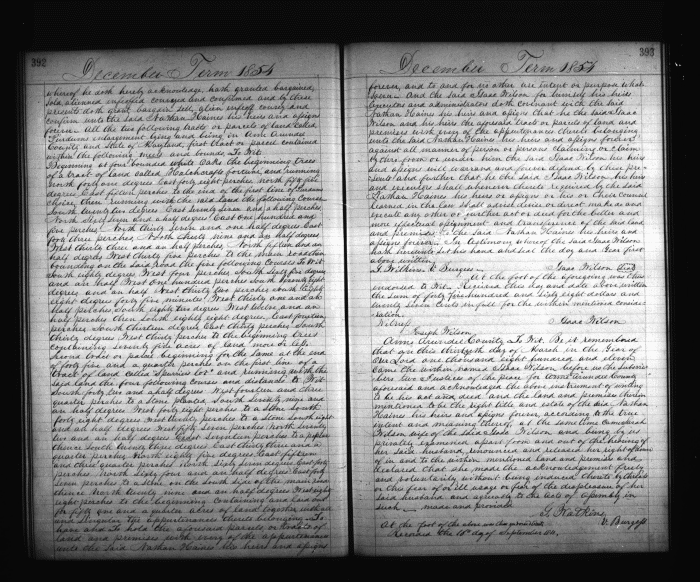 392
December Term 1854
whereof he doth hereby acknowledge, hath granted bargained,
sold, aliened enfeoffed conveyed and confirmed and by these
presents doth grant bargain sell, alien enfeoff convey and
Confirm unto the said Nathan Haines his heirs and assigns
forever. All the two following tracts or parcels of land called
lying and being in Ann Arundel
County and State of Maryland, first tract or parcel contained
within the following metes and bounds To Wit
Beginning at four bounded white Oaks the beginning trees
of a tract of land called fortune, and running
north forty one degrees East forty eight perches, north fifty five
degrees East fifteen perches to the end of the first line of
choice, then running with the said land the following courses
South twenty two degrees East seventy seven and a half perches
North sixty seven and a half degrees East one hundred and
five perches. North thirty seven and one half degrees East
forty three perches. North thirty nine and an half degrees
West thirty three and an half perches. North fifteen and an
half degrees West thirty five perches to the main road then
bounding on the said road the five following courses To Wit
South eighty degrees West four perches South sixty five degrees
and an half West one hundred perches South seventy eight
degrees and an half West thirty two perches, South fifty
eight degrees forty five minutes West thirty one and an
half perches, South eighty two degrees West twelve and an
half perches then South eighty eight degrees East fourteen
perches South thirteen degrees East thirty perches South
thirty degrees West thirty perches to the beginning trees
containing seventy five acres of land more or less.
Second tract or parcel beginning for the same at the end
of forty five and a quarter perches on the first line of a
tract of land called Warring lot and running with the
said land the four following courses and distances To Wit
South forty two and a half degrees West fourteen and three
quarter perches to a stone planted, South seventy nine and
an half degrees West forty eight perches to a stone South
forty eight degrees West thirty perches to a stone South eight
and an half degrees East fifty seven perches North seventy
two and an half degrees East seventeen perches to a poplar
thence South thirty degrees East thirty three and a
quarter perches North eighty five degrees East fifteen
and three quarter perches North sixty seven degrees East forty
perches North sixty four and an half degrees East forty
seven perches to a stone on the south side of the main road
thence North twenty nine and an half degrees West eighty
eight perches to the beginning containing and laid out
for fifty one and a quarter acres of land together with all
and Singular the appurtenances thereto belonging. To
have and To hold the aforesaid parcels or tracts of
Land and premises with every of the appurtenances
unto the said Nathan Haines his heirs and assigns
393
December Term 1854
forever, and to and for no other use intent or purpose what
soever. And the said Isaac Wilson for himself his heirs
Executors and administrators doth covenant with the said
Nathan Haines his heirs and assigns that he the said Isaac
Wilson and his heirs the aforesaid tract or parcels of land and
premises with every of the appurtenances thereto belonging
unto the said Nathan Haines his heirs and assigns forever
against all manner of person or persons claiming or to claim
by thro from or under him the said Isaac Wilson his heirs
and assigns will warrant and forever defend by these pre-
sents. And further that he the said Isaac Wilson, his heirs
and executors shall whenever thereto required by the said
Nathan Haines his heirs or assigns or his or their Council
learned in the law shall advise devise or direct make and
execute any other or further act or deed for the better and
more effectual assignment and transferrence of the said land
and premises to the said Nathan Haines his heirs and
assigns forever. In testimony whereof the said Isaac Wilson
hath hereunto set his hand and seal the day and year first
above written
V. Burgess Isaac Wilson Seal
At the foot of the aforegoing was thus
endorsed to Wit. Received this day and date above written
the sum of forty five hundred and sixty eight dollars and
twenty seven cents in full for the within mentioned consid-
eration Isaac Wilson
Witness
Joseph Wilson
Ann Arundel County To Wit. Be it remembered
that on this thirtyeth day of March in the year of
Our Lord one thousand eight hundred and eleven
Came the within named Isaac Wilson before us the subscri-
bers two Justices of the peace for Anne Arundel County
aforesaid and acknowledged the above instrument of writing
to be his act and deed and the land and premises therein
mentioned to be the right title and estate of the said Nathan
Haines his heirs and assigns forever, according to the true
intent and meaning thereof, at the same time
Wilson wife of the said Isaac Wilson, and being by us
privately examined apart from and out of the hearing of
her said husband, renounced and released her right of dower
of in and to the within mentioned land and premises and
declared that she made the acknowledgement freely
and voluntarily without being induced thereto by threats
or the fear of or ill usage or fear of the displeasure of her
said husband and agreeably to the acts of assembly in
such made and provided
V. Burgess
At the foot of the above was thus written to wit
Received the 18th day of September 1811,